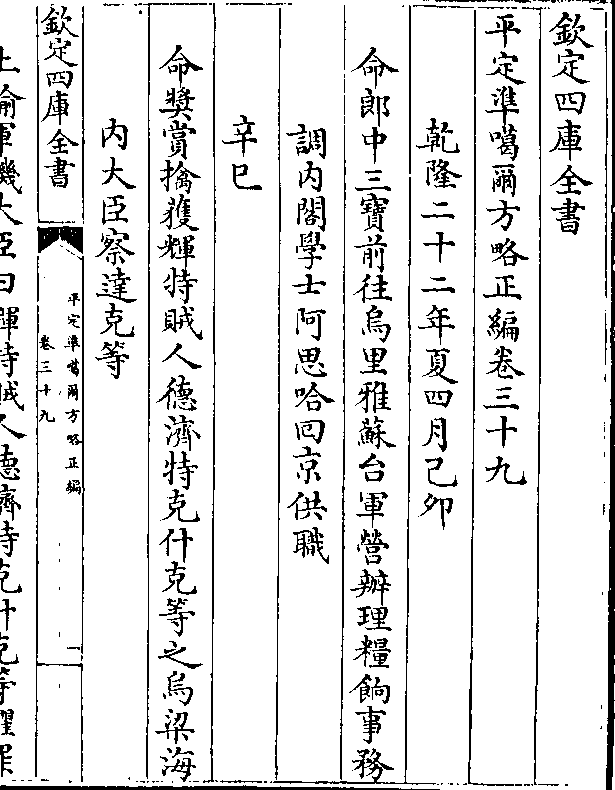 欽定四庫全書
平定準噶爾方略正編卷三十九
乾隆二十二年夏四月己卯
命郎中三寶前往烏里雅蘇台軍營辦理糧餉事務
調內閣學士阿思哈回京供職
辛巳
命獎賞擒獲輝特賊人德濟特克什克等之烏梁海
內大臣察達克等
欽定四庫全書
平定準噶爾方略正編
卷三十九
一
上諭軍機大臣曰輝特賊人德濟特克什克等罪